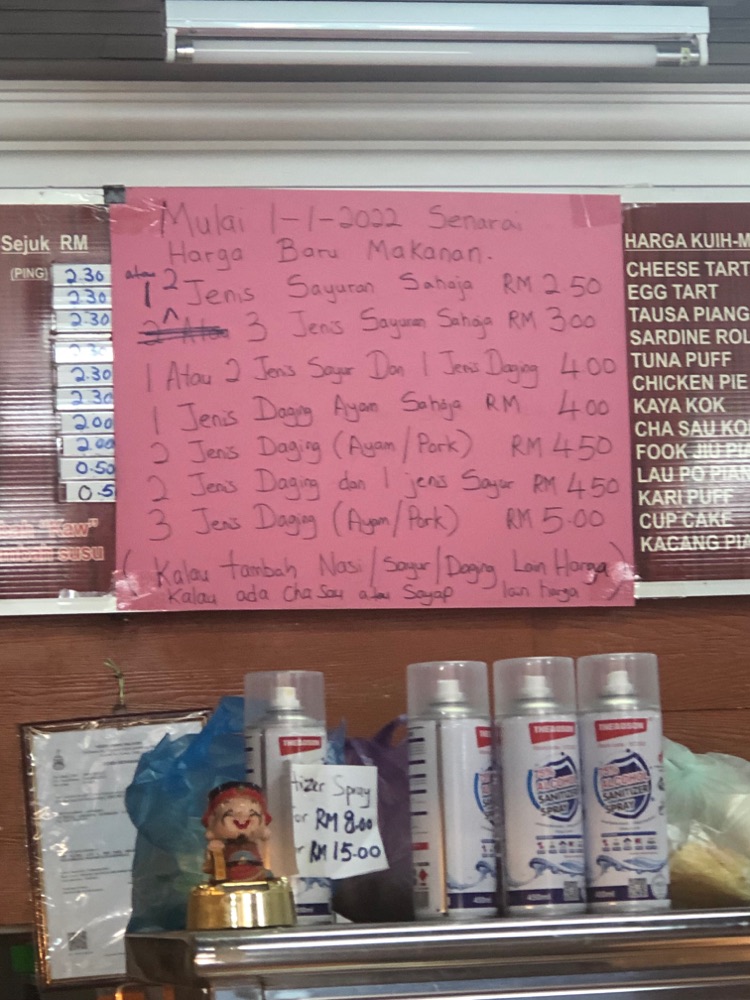 Sejuk RM
(PING) 2.30
2.30
2.30
2.30
2.30
2.00
2.00
0.50
"Kaw"
susu
Mulai 1-1-2022 Senarai
Harga Baru Makanan.
1 atau 2 Jenis Sayuran Sahaja RM 2.50
3 Jenis Sayuran Sahaja RM 3.00
1 Atau 2 Jenis Sayur Dan 1 Jenis Daging 4.00
1 Jenis Daging Ayam Sahaja RM 4.00
2 Jenis Daging (Ayam/Pork) RM 4.50
2 Jenis Daging dan 1 jenis Sayur RM 4.50
3 Jenis Daging (Ayam/Pork) RM 5.00
(Kalau tambah Nasi/Sayur/Daging Lain Harga)
Kalau ada Cha Sau atau Sayap lain harga
HARGA KUIH-M
CHEESE TART
EGG TART
TAUSA PIANG
SARDINE ROL
TUNA PUFF
CHICKEN PIE
KAYA KOK
CHA SAU KO
FOOK JIU PI
LAU PO PIA
KARI PUFF
CUP CAKE
KACANG PIA
tizer Spray
or RM 8.00
r RM 15.00
THEADSON
THEADSON
75% ALCOHOL
SANITIZER
SPRAY
THEADSON
75% ALCOHOL
SANITIZER
SPRAY